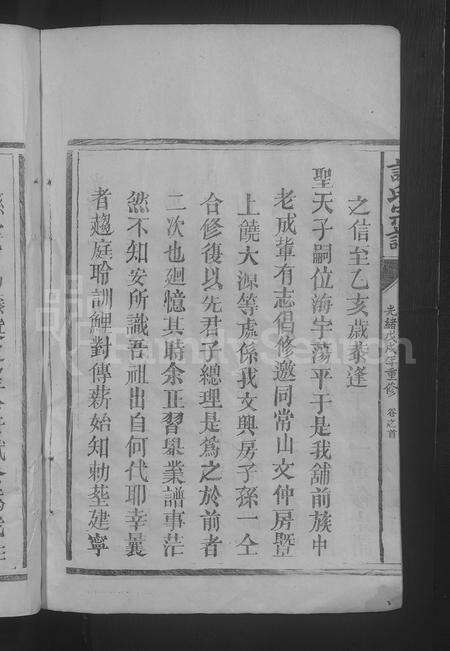 之信至乙亥歲恭逢
聖天子嗣位海宇蕩平于是我舖前族中
老成輩有志倡修邀同常山文仲房暨
上饒大源等處係我文興房子孫一仝
合修復以先君子總理是爲之於前者
二次也廻憶其時余正習舉業譜事茫
然不知安所識吾祖出自何代耶幸曩
者趨庭聆訓鯉對傳薪始知勅塟建寧
氏宗譜
光緒戊戌年重修 卷之首
FamilySearch